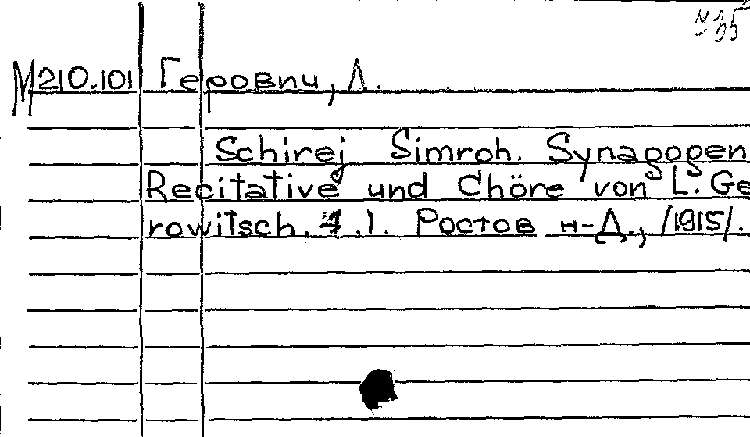 М210.101 Геровпч, Л.
Schirej Simroh. Synagogen
Recitative und Chöre von L. Ge
rowitsch. Ч.1. Ростов н-Д., /1915/.